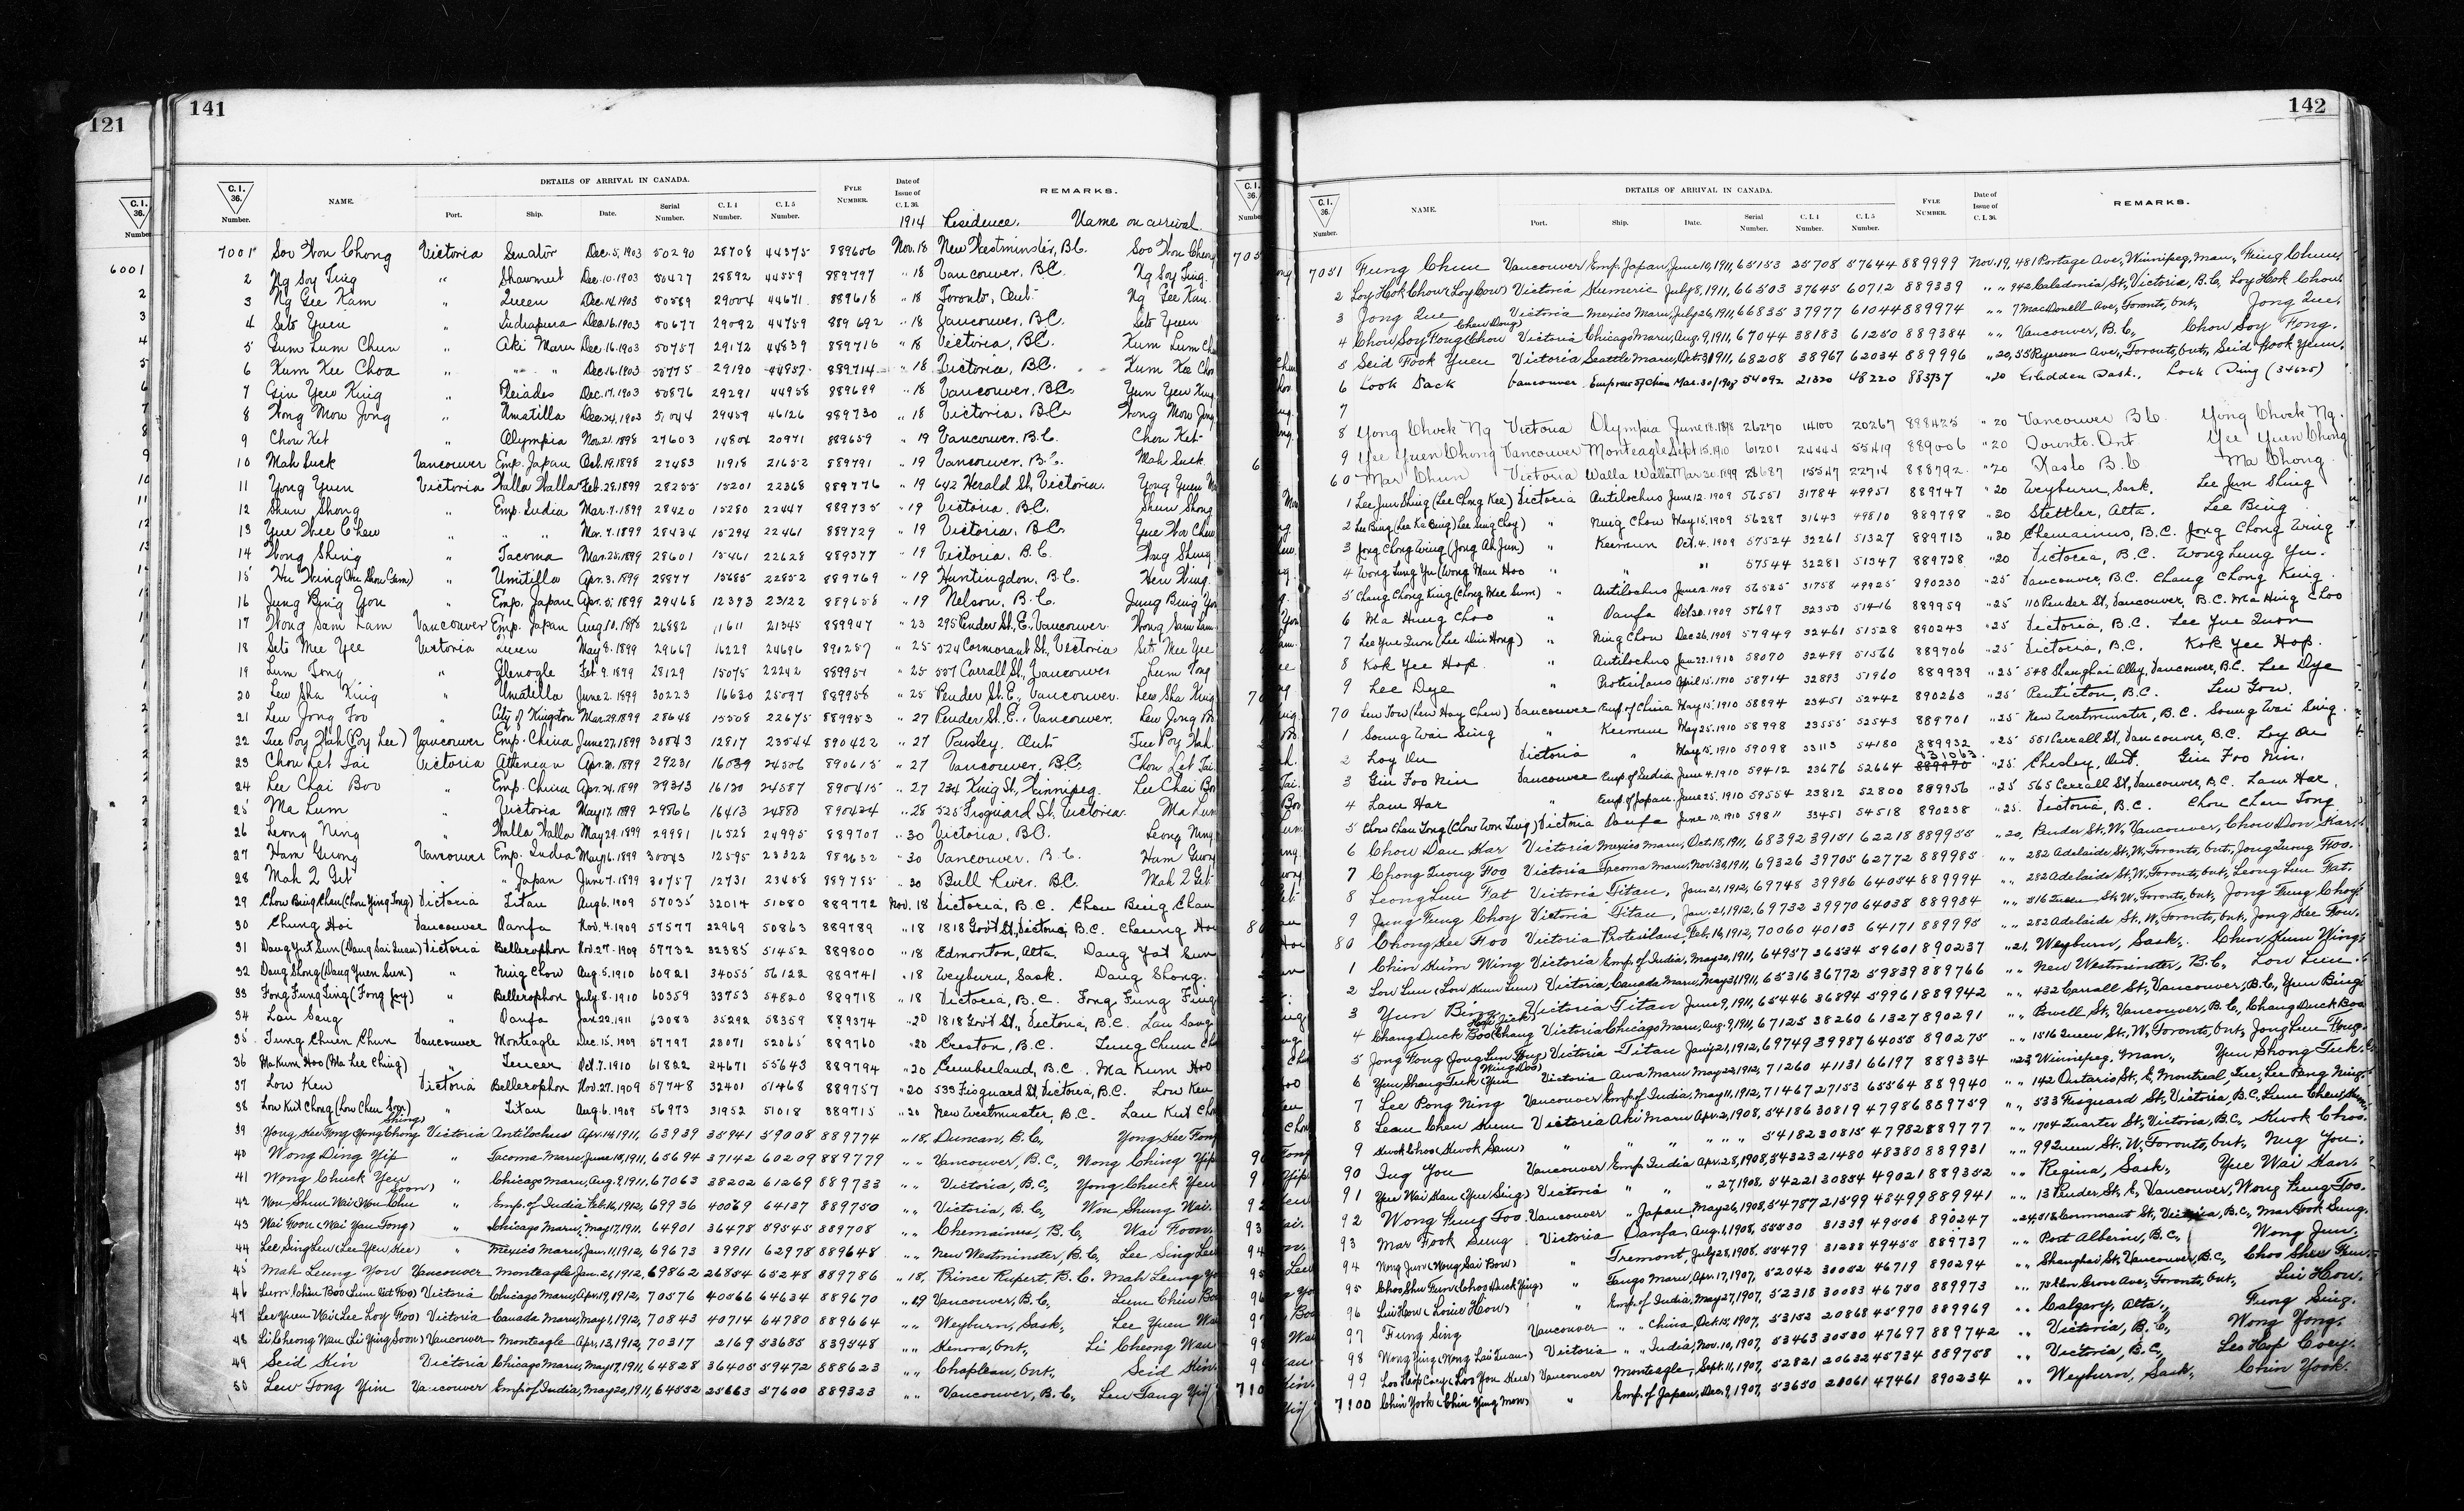 121
C. I. 36. Number
6001
141
C. I. 36. Number. NAME. DETAILS OF ARRIVAL IN CANADA. Port. Ship. Date. Serial Number. C. I. 4 Number. C. I. 5 Number. FYLE NUMBER. Date of Issue of C. I. 36. REMARKS.
1914 Residence. Name on arrival.
7001 Soo Won Chong Victoria Senator Dec. 5, 1903 50290 28708 44375 889606 Nov. 18 New Westminster, B.C. Soo Won Chong
2 Ng Soy Ting " Shawmut Dec. 10. 1903 50477 28892 44559 889797 " 18 Vancouver, B.C. Ng Soy Ting.
3 Ng Gee Kam " Queen Dec. 14. 1903 50589 29004 44671 889618 " 18 Toronto, Ont. Ng Gee Kam.
4 Seto Yuen " Indrapura Dec. 16. 1903 50677 29092 44759 889692 " 18 Vancouver, B.C. Seto Yuen
5 Gum Lum Chun " Aki Maru Dec. 16. 1903 50757 29172 44839 889716 " 18 Victoria, B.C. Kum Lum
6 Kum Kee Choa " " " Dec. 16. 1903 50775 29190 44857 889714 " 18 Victoria, B.C. Kum Kee
7 Gin Yew King " Pleiades Dec. 17. 1903 50876 29291 44958 889699 " 18 Vancouver, B.C. Yun Yew King
8 Wong Mow Jong " Umatilla Dec. 24, 1903 51044 29459 46126 889730 " 18 Victoria, B.C. Wong Mow Jong
9 Chou Ket " Olympia Nov. 21. 1898 27603 14804 20971 889659 " 19 Vancouver. B.C. Chou Ket
10 Mah Suck Vancouver Emp. Japan Oct. 19. 1898 27483 11918 21652 889791 " 19 Vancouver. B.C. Mah Suck.
11 Yong Yuen Victoria Walla Walla Feb. 28. 1899 28255 15201 22368 889776 " 19 642 Herald St, Victoria. Yong Yuen
12 Shun Shong " Emp. India Mar. 7. 1899 28420 15280 22447 889735 " 19 Victoria, B.C. Shun Shong
13 Yue Wee Chew " " " Mar. 7. 1899 28434 15294 22461 889729 " 19 Victoria, B.C. Yue Wee Chew
14 Wong Shing " Tacoma Mar. 25. 1899 28601 15461 22628 889377 " 19 Victoria, B.C. Wong Shing
15 Hu Wing (Hu Shou Cam) " Umitilla Apr. 3. 1899 28877 15685 22852 889769 " 19 Huntingdon, B.C. Heu Wing.
16 Jung Bing You " Emp. Japan Apr. 5. 1899 29468 12393 23122 889658 " 19 Nelson, B.C. Jung Bing You
17 Wong Sam Lam Vancouver Emp. Japan Aug. 10. 1898 26882 11611 21345 889947 " 23 295 Pender St., E., Vancouver. Wong Sam Lam.
18 Seto Mee Yee Victoria Queen May 8. 1899 29667 16229 24696 890257 " 25 524 Cormorant St, Victoria Seto Mee Yee
19 Lum Tong " Glenogle Feb. 9. 1899 28129 15075 22242 889951 " 25 507 Carrall St, Vancouver Lum Tong
20 Lew Sha King " Umatilla June 2. 1899 30223 16630 25097 889958 " 25 Pender St. E., Vancouver. Lew Sha King
21 Leu Jong Foo " City of Kingston Mar. 29. 1899 28648 15508 22675 889953 " 27 Pender St. E., Vancouver. Leu Jong
22 Tue Poy Wah (Poy Lee) Vancouver Emp. China June 27. 1899 30843 12817 23544 890422 " 27 Paisley, Ont. Tue Poy Wah.
23 Chou Let Tai Victoria Athenian Apr. 21. 1899 29231 16039 24506 890615 " 27 Vancouver, B.C. Chou Let Tai
24 Lee Chai Boo " Emp. China Apr. 24, 1899 29313 16120 24587 890415 " 27 234 King St., Winnipeg. Lee Chai Boo
25 Ma Lum " Victoria May 17. 1899 29866 16413 24880 890424 " 28 525 Fisguard St, Victoria. Ma Lum
26 Leong Ning " Walla Walla May 29. 1899 29981 16528 24995 889707 " 30 Victoria, B.C. Leong Ning
27 Ham Guong Vancouver Emp. India May 16. 1899 30043 12595 23322 889632 " 30 Vancouver. B.C. Ham Guong
28 Mah 2 Get " " Japan June 7. 1899 30757 12731 23458 889755 " 30 Bull River. B.C. Mah 2 Get
29 Chou Bing Chan (Chou Ying Tong) Victoria Titan Aug 6. 1909 57035 32014 51080 889772 Nov. 18 Victoria, B.C. Chou Bing Chan
30 Chung Hoi Vancouver Oanfa Nov. 4. 1909 57577 22969 50863 889789 " 18 1818 Gov't St, Victoria, B.C. Cheung Hoi
31 Dang Yut Sun (Dang Sai Quan) Victoria Bellerophon Nov. 27. 1909 57732 32385 51452 889800 " 18 Edmonton, Alta. Dang Yat Sun
32 Dang Shong (Dang Yuen Sun) " Ning Chow Aug. 5. 1910 60921 34055 56122 889741 " 18 Weyburn, Sask. Dang Shong.
33 Fong Fung Ting (Fong Joy) " Bellerophon July. 8. 1910 60359 33753 54820 889718 " 18 Victoria, B.C. Fong Fung Ting
34 Lau Seng " Oanfa Jan. 22. 1911 63083 35292 58359 889374 " 20 1818 Gov't St., Victoria, B.C. Lau Sang
35 Tung Chuen Chun Vancouver Monteagle Dec. 15. 1909 57797 23071 52065 889760 " 20 Creston, B.C. Tung Chun
36 Ma Kum Hoo (Ma Lee Ching) " Teucer Oct. 7. 1910 61822 24671 55643 889794 " 20 Cumberland, B.C. Ma Kum Hoo
37 Low Ken Victoria Bellerophon Nov. 27. 1909 57748 32401 51468 889757 " 20 533 Fisguard St, Victoria, B.C. Low Ken
38 Low Kut Chong (Low Chew Soon) " Titan Aug. 6. 1909 56973 31952 51018 889715 " 20 New Westminster, B.C. Lau Kut
39 Yong Hee Fong (Yong Chong Shing) Victoria Antilochus Apr. 14, 1911, 63939 35941 59008 889774 " 18, Duncan, B.C., Yong Hee Fong
40 Wong Ding Yip " Tacoma Maru, June 18, 1911, 65694 37142 60209 889779 " " Vancouver, B.C., Wong Ching Yip
41 Wong Chuck Yeu " Chicago Maru, Aug. 9, 1911, 67063 38202 61269 889733 " " Victoria, B.C., Yong Chuck Yeu
42 Won Shun Wai (Won Chu Soon) " Emp. of India Feb. 16, 1912, 69936 40069 64137 889750 " " Victoria, B.C., Won Shung Wai.
43 Wai Foon (Wai Yau Tong) " Chicago Maru, May 17, 1911, 64901 36478 59545 889708 " " Chemainus, B.C., Wai Foon.
44 Lee Sing Leu (Lee Yeu Hee) " Mexico Maru, Jan. 11, 1912, 69673 39911 62978 889648 " " New Westminster, B.C., Lee Sing Lee
45 Mah Leung You Vancouver Monteagle Jan. 21, 1912, 69862 26854 65248 889786 " 18, Prince Rupert, B.C. Mah Leung
46 Lum Chin Boo (Lum Out Foo) Victoria Chicago Maru, Apr. 19, 1912, 70576 40566 64634 889670 " 19 Vancouver, B.C., Lum Chin Boo
47 Lee Yuen Wai (Lee Loy Foo) Victoria Canada Maru, May 1, 1912, 70843 40714 64780 889664 " " Weyburn, Sask., Lee Yuen Wai
48 Li Cheong Wau (Li Ying Soon) Vancouver Monteagle Apr. 13, 1912, 70317 2169 53685 839548 " " Kenora, Ont., Li Cheong Wau
49 Seid Kin Victoria Chicago Maru, May 17, 1911, 64828 36405 59472 888623 " " Chapleau, Ont., Seid Kin.
50 Lew Tong Yim Vancouver Emp. of India, May 20, 1911, 64552 25663 57600 889323 " " Vancouver, B.C., Lew Tang
142
C. I. 36. Number. NAME. DETAILS OF ARRIVAL IN CANADA. Port. Ship. Date. Serial Number. C. I. 4 Number. C. I. 5 Number. FYLE NUMBER. Date of Issue of C. I. 36. REMARKS.
7051 Fung Chun Vancouver Emp. Japan, June 10, 1911, 65153 25708 57644 889999 Nov. 19, 481 Portage Ave, Winnipeg, Man., Fung Chun
2 Loy Hok Chow (Loy Cow) Victoria Kumeric July 8, 1911, 66503 37645 60712 889339 " " 942 Caledonia St, Victoria, B.C, Loy Hok Chow
3 Jong Que Victoria Mexico Maru, July 26, 1911, 66835 37977 61044 889974 " " 7 MacDonell Ave, Toronto, Ont, Jong Que,
4 Chow Soy Fong (Chow Chew Dong) Victoria Chicago Maru, Aug. 9, 1911, 67044 38183 61250 889384 " " Vancouver, B.C., Chow Soy Fong.
5 Seid Fook Yuen Victoria Seattle Maru, Oct. 3, 1911, 68208 38967 62034 889996 " 20, 55 Ryerson Ave., Toronto, Ont., Seid Fook Yeun.
6 Look Sack Vancouver Empress of China Mar. 30/1908 54092 21320 48220 883737 " 20 Gledden Sask., Lock Ding (34625)
7
8 Yong Chock Ng Victoria Olympia June 18. 1898 26270 14100 20267 898425 " 20 Vancouver B.C. Yong Chock Ng.
9 Yee Yuen Chong Vancouver Monteagle Sept 15. 1910 61201 24444 55419 889006 " 20 Toronto. Ont Yee Yuen Chong
60 Mar Chun Victoria Walla Walla Mar. 30. 1899 28687 15547 22714 888792 " 20 Kaslo B.C Ma Chong.
1 Lee Jun Shing (Lee Chong Kee) Victoria Antilochus June 12. 1909 56551 31784 49951 889747 " 20 Weyburn, Sask. Lee Jun Shing
2 Lee Bing (Lee Ka Bing) Lee Sing Choy) " Ning Chow May 15. 1909 56287 31643 49810 889798 " 20 Stettler, Alta. Lee Bing
3 Jong Chong Wing (Jong Ah Jun) " Keemun Oct. 4. 1909 57524 32261 51327 889713 " 20 Chemainus, B.C. Jong Chong Wing
4 Wong Lung Yu (Wong Man Hoo " " " 57544 32281 51347 889728 " 20 Victoria, B.C. Wong Lung Yu.
5 Chang Chong King (Chong Mee Sum) " Antilochus June 12. 1909 56525 31758 49925 890230 " 25 Vancouver, B.C. Chang Chong King.
6 Ma Hung Choo " Oanfa Oct. 30. 1909 57697 32350 51416 889959 " 25 110 Pender St, Vancouver, B.C. Ma Hing Choo
7 Lee Yue Quon (Lee Din Hong) " Ning Chow Dec 26, 1909 57949 32461 51528 890243 " 25 Victoria, B.C. Lee Yue Quon
8 Kok Yee Hop. " Antilochus Jan. 22. 1910 58070 32499 51566 889706 " 25 Victoria, B.C. Kok Yee Hop.
9 Lee Dye " Protesilaus April 15. 1910 58714 32893 51960 889939 " 25 548 Shanghai Alley, Vancouver, B.C. Lee Dye
70 Lew Tow (Lew Hay Chew) Vancouver Emp. of China May 15. 1910 58894 23451 52442 890263 " 25 Penticton, B.C. Lew Gow.
1 Soung Wai Sing " Keemun May 25. 1910 58998 23555 52543 889701 " 25 New Westminster, B.C. Soung Wai Sing.
2 Loy On Victoria " May 15. 1910 59098 33113 54180 889932 " 25 551 Carrall St, Vancouver, B.C. Loy On
3 Gin Foo Nin Vancouver Emp of India June 4. 1910 59412 23676 52664 131063 889970 " 25 Chesley, Ont. Gin Foo Nin.
4 Lam Har " Emp. of Japan. June 25. 1910 59554 23812 52800 889956 " 25 565 Carrall St, Vancouver, B.C. Lam Har.
5 Chow Chau Tong (Chow Won Ting) Victoria Oanfa June 10. 1910 59811 33451 54518 890238 " 25. Victoria, B.C. Chou Chau Tong
6 Chou Dan Kar Victoria Mexico Maru, Oct. 18, 1911, 68392 39151 62218 889955 " 20, Pender St, W., Vancouver, Chou Don Kar.
7 Chong Quong Foo Victoria Tacoma Maru, Nov. 30, 1911, 69326 39705 62772 889985 " " 282 Adelaide St, W, Toronto, Ont, Jong Quong Foo.
8 Leong Lun Fat Victoria Titan, Jan. 21, 1912, 69748 39986 64054 889994 " " 282 Adelaide St, W, Toronto, Ont, Leong Lun Fat.
9 Jung Fung Choy Victoria Titan, Jan. 21, 1912, 69732 39970 64038 889984 " " 516 Queen St, W, Toronto, Ont, Jong Fung Choy
80 Chong Hee Foo Victoria Protesilaus, Feb. 16, 1912, 70060 40103 64171 889995 " " 282 Adelaide St, W, Toronto, Ont, Jong Hee Fou.
1 Chin Kum Wing Victoria Emp. of India, May 20, 1911, 64957 36534 59601 890237 " 21, Weyburn, Sask., Chin Kum Wing
2 Low Lun (Low Kum Lun) Victoria, Canada Maru, May 31, 1911, 65316 36772 59839 889766 " " New Westminster, B.C., Low Lun.
3 Yun Bing Victoria Titan June 9, 1911, 65446 36894 59961 889942 " " 432 Carrall St, Vancouver, B.C., Yun Bing
4 Chang Duck Boo (Chang Hop Jick) Victoria Chicago Maru, Aug. 9, 1911, 67125 38260 61327 890291 " " Powell St, Vancouver, B.C, Chang Duck Boa
5 Jong Fong (Jong Lun Fong) Victoria Titan Jan'y 21, 1912, 69749 39987 64055 890275 " " 1516 Queen St, W, Toronto, Ont, Jong Lun Fong.
6 Yun Shang Tuk (Yun Wing Doo) Victoria Awa Maru May 22, 1912, 71260 41131 66197 889334 " 23 Winnipeg, Man., Yun Shong Tuk.
7 Lee Pong Ning Vancouver Emp. of India, May 11, 1912, 71467 27153 65564 889940 " " 142 Ontario St, E, Montreal, Que, Lee Pang Ning.
8 Leam Chen Kum Victoria Aki Maru Apr. 2, 1908, 54186 30819 47986 889759 " " 533 Fisguard St, Victoria, B.C, Lum Chew Kum,
9 Kwok Choo (Kwok Sam) " " " " " " 54182 30815 47982 889777 " " 1704 Quarter St, Victoria, B.C., Kwok Choo.
90 Ing You Vancouver Emp India Apr. 28, 1908, 54323 21480 48380 889931 " " 99 Queen St. W, Toronto, Ont, Ing You.
91 Yee Wai Kan (Yee Sing) Victoria " " " 27, 1908, 54221 30854 49021 889352 " " Regina, Sask., Yee Wai Kan.
92 Wong Fung Foo Vancouver " Japan, May 26, 1908, 54787 21599 48499 889941 " " 13 Pender St, E, Vancouver, Wong Fung Foo.
93 Mar Fook Sung Victoria Oanfa, Aug. 1, 1908, 55530 31339 49506 890247 " 24, 516 Cormorant St, Victoria, B.C., Mar Fook Sung.
94 Wong Jun (Wong Sai Bow) " Tremont, July 28, 1908, 55479 31288 49455 889737 " " Port Alberni, B.C. Wong Jun.
95 Choo Shu Fun (Choo Duck Ying) " Tango Maru, Apr. 17, 1907, 52042 30052 46719 890294 " " Shanghai St, Vancouver, B.C, Choo Shee Fun.
96 Lui How (Louie How) " Emp. of India, May 27, 1907, 52318 30083 46750 889973 " " 75 Elm Grove Ave, Toronto, Ont, Lui How.
97 Fung Sing Vancouver " " China, Oct. 15, 1907, 53152 20868 45970 889969 " " Calgary, Alta., Fung Sing.
98 Wong Ying (Wong Lai Quan) Victoria " " India, Nov. 10, 1907, 53463 30530 47697 889742 " " Victoria, B.C., Wong Yong.
99 Loo Hop Coey (Loo You Hee) Vancouver Monteagle, Sept. 11, 1907, 52821 20632 45734 889758 " " Victoria, B.C, Leo Hop Coey.
7100 Chin York (Chin Ying Mow) " Emp. of Japan, Dec. 9, 1907, 53650 21061 47461 890234 " " Weyburn, Sask., Chin Yook.